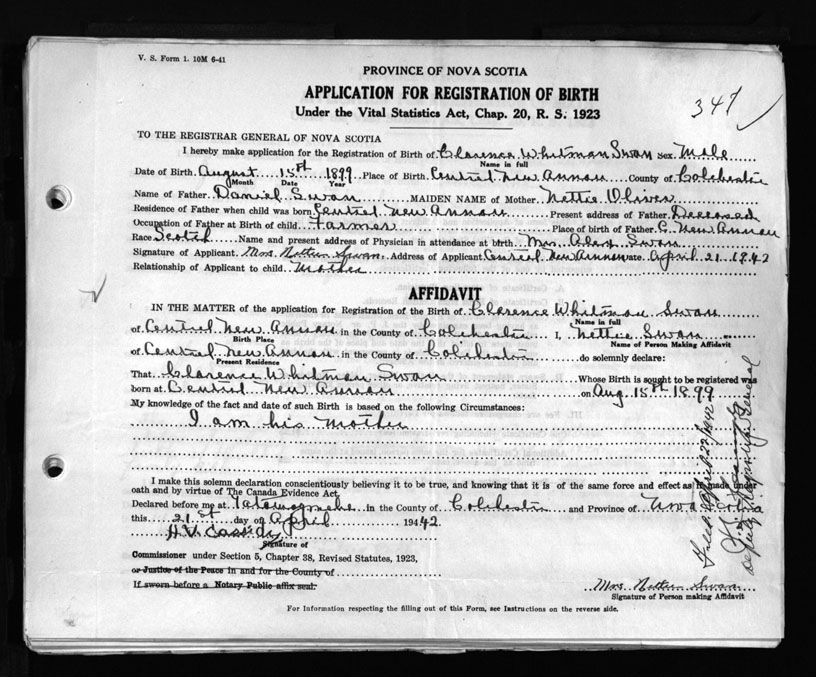 V. S. Form 1. 10M 6-41
PROVINCE OF NOVA SCOTIA
APPLICATION FOR REGISTRATION OF BIRTH
Under the Vital Statistics Act, Chap. 20, R. S. 1923
347
TO THE REGISTRAR GENERAL OF NOVA SCOTIA
I hereby make application for the Registration of Birth of Clarence Whitman Swan Sex Male
Name in full
Date of Birth August 15th 1899 Place of Birth Central New Annan County of Colchester
Month Date Year
Name of Father Daniel Swan MAIDEN NAME of Mother Nettie Oliver
Residence of Father when child was born Central New Annan Present address of Father Deceased
Occupation of Father at Birth of child Farmer Place of birth of Father C. New Annan
Race Scotch Name and present address of Physician in attendance at birth Mrs. Swan
Signature of Applicant Mrs Nettie Swan Address of Applicant Central New Annan Date April 21 1942
Relationship of Applicant to child Mother
AFFIDAVIT
IN THE MATTER of the application for Registration of the Birth of Clarence Whitman Swan
Name in full
of Central New Annan in the County of Colchester I, Nettie Swan
Birth Place Name of Person Making Affidavit
of Central New Annan in the County of Colchester do solemnly declare:
Present Residence
That Clarence Whitman Swan Whose Birth is sought to be registered was
born at Central New Annan on Aug 15th 1899
My knowledge of the fact and date of such Birth is based on the following Circumstances:
I am his Mother
I make this solemn declaration conscientiously believing it to be true, and knowing that it is of the same force and effect as if made under
oath and by virtue of The Canada Evidence Act.
Declared before me at Tatamagouche in the County of Colchester and Province of Nova Scotia
this 21st day of April 1942
H.V. Cassidy
Signature of
Commissioner under Section 5, Chapter 38, Revised Statutes, 1923,
or Justice of the Peace in and for the County of
If sworn before a Notary Public affix seal.
Mrs. Nettie Swan
Signature of Person making Affidavit
For Information respecting the filling out of this Form, see Instructions on the reverse side.
Filed April 22/1942
Deputy Registrar General